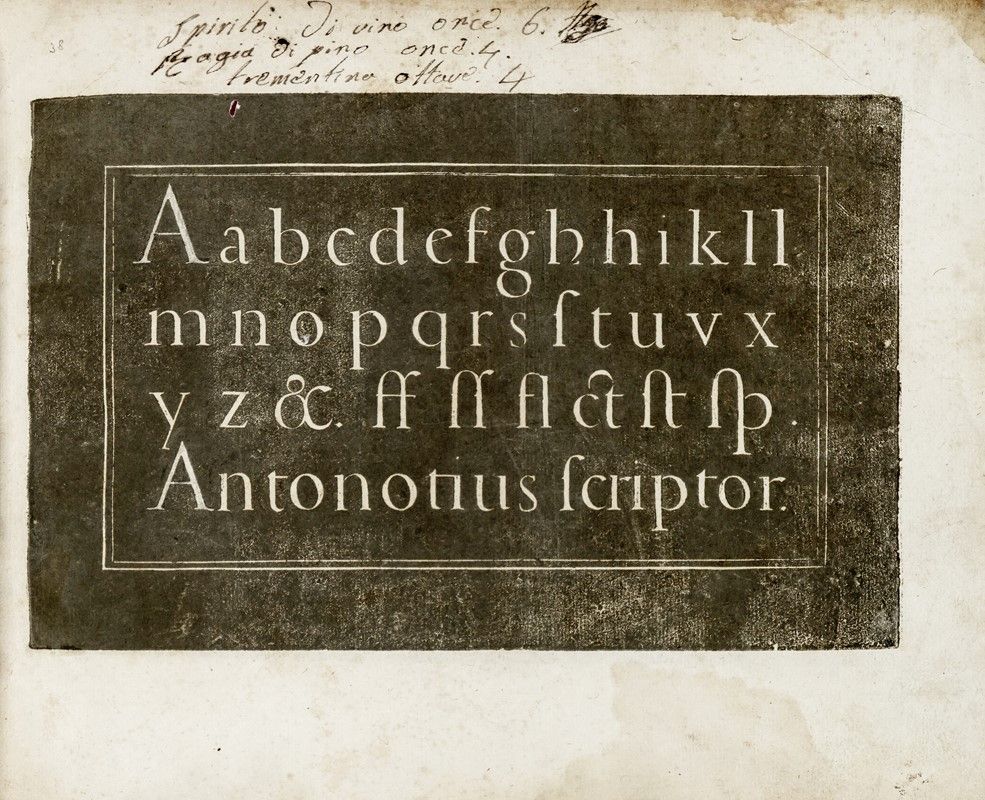 38
Spirito di vino once. 6.
Ragia di pino once. 4.
trementina ottave. 4
A a b c d e f g h h i k l l
m n o p q r s ſ t u v x
y z &. ff ſſ fl ct ſt ſp.
Antonotius ſcriptor.